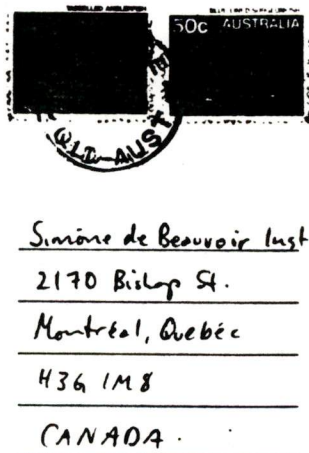 50c AUSTRALIA
QLD-AUST
Simone de Beauvoir Inst
2170 Bishop St.
Montréal, Quebéc
H3G 1M8
CANADA.